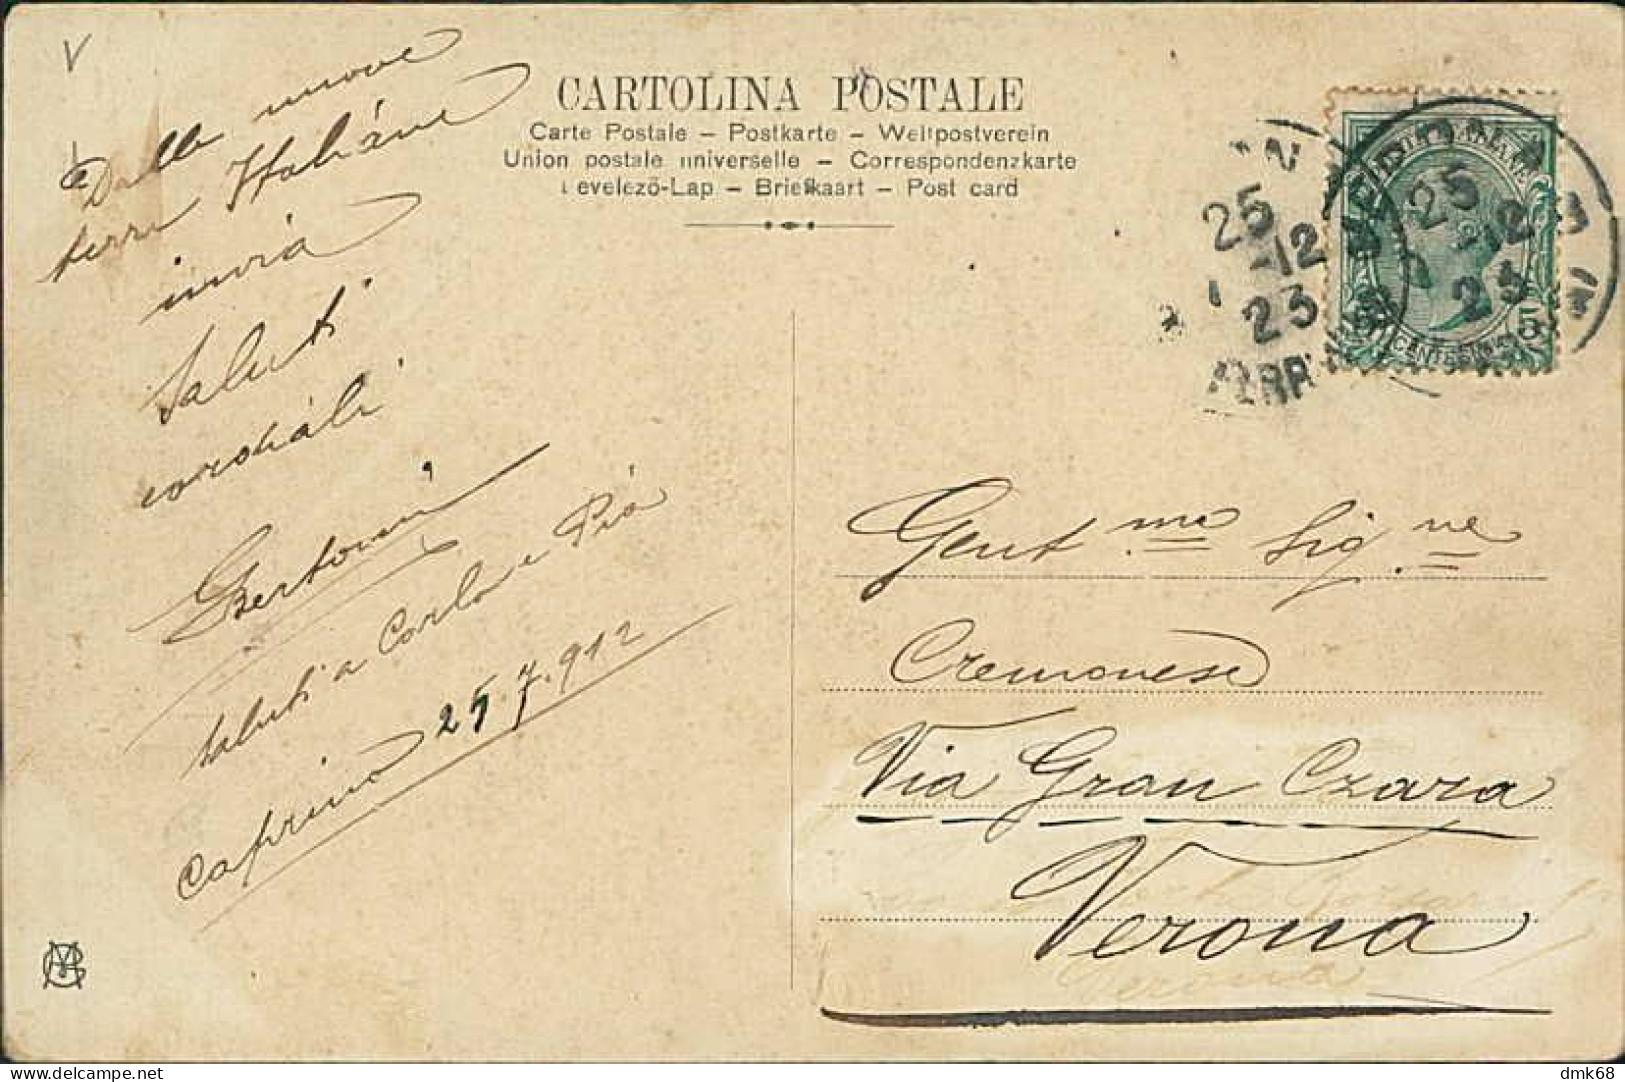 V
CARTOLINA POSTALE
Carte Postale – Postkarte – Weltpostverein
Union postale universelle – Correspondenzkarte
Levelező-Lap – Briefkaart – Post card
Dalle nuove
terre Italiane
invia
Saluti
cordiali
Bertonini
saluti a Carlo e Pia
Caprino 25.7.912
25
12
23
25
23
5
5
CENTESIMI
Gent.ma Sig.ne
Cremonese
Via Gran Czara
Verona
delcampe.net
dmk68